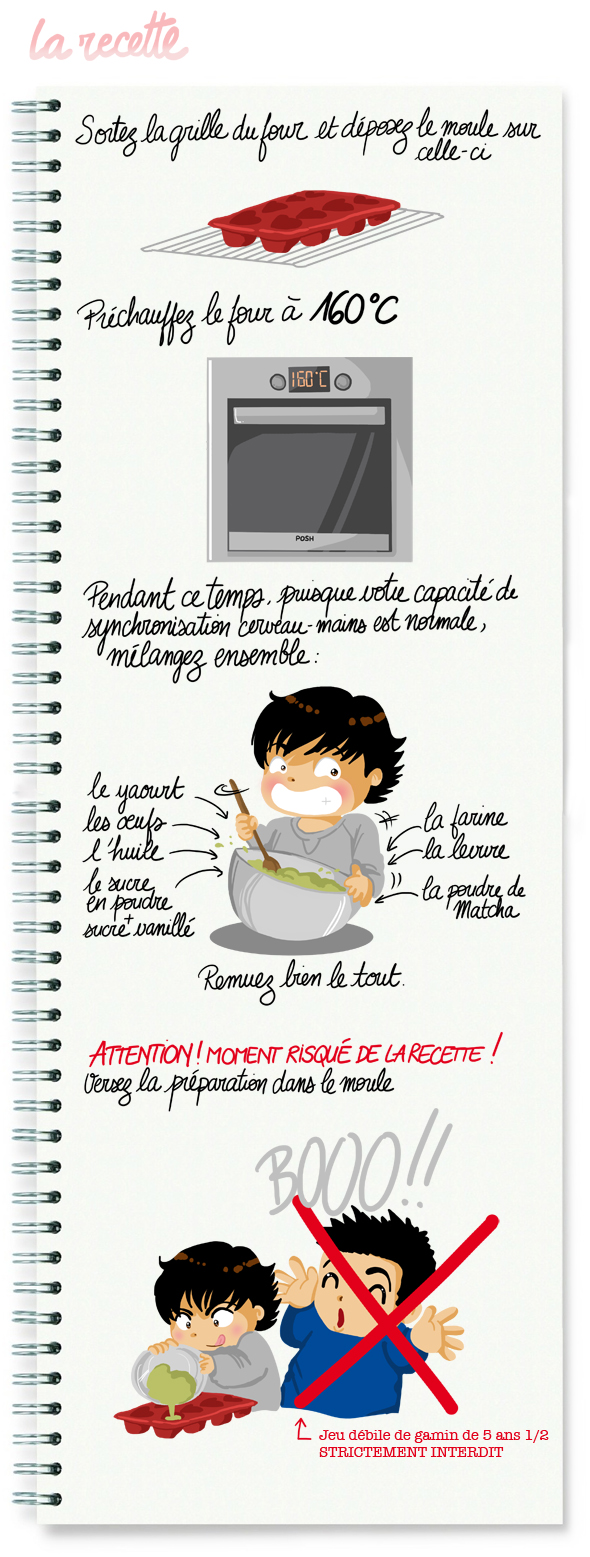 la recette
Sortez la grille du four et déposez le moule sur
celle-ci
Préchauffez le four à 160°C
160°C
POSH
Pendant ce temps, puisque votre capacité de
synchronisation cerveau-mains est normale,
mélangez ensemble :
le yaourt
les œufs
l'huile
le sucre
en poudre
+
sucre vanillé
la farine
la levure
la poudre de
Matcha
Remuez bien le tout.
ATTENTION ! MOMENT RISQUÉ DE LA RECETTE !
Versez la préparation dans le moule
BOOO!!
Jeu débile de gamin de 5 ans 1/2
STRICTEMENT INTERDIT